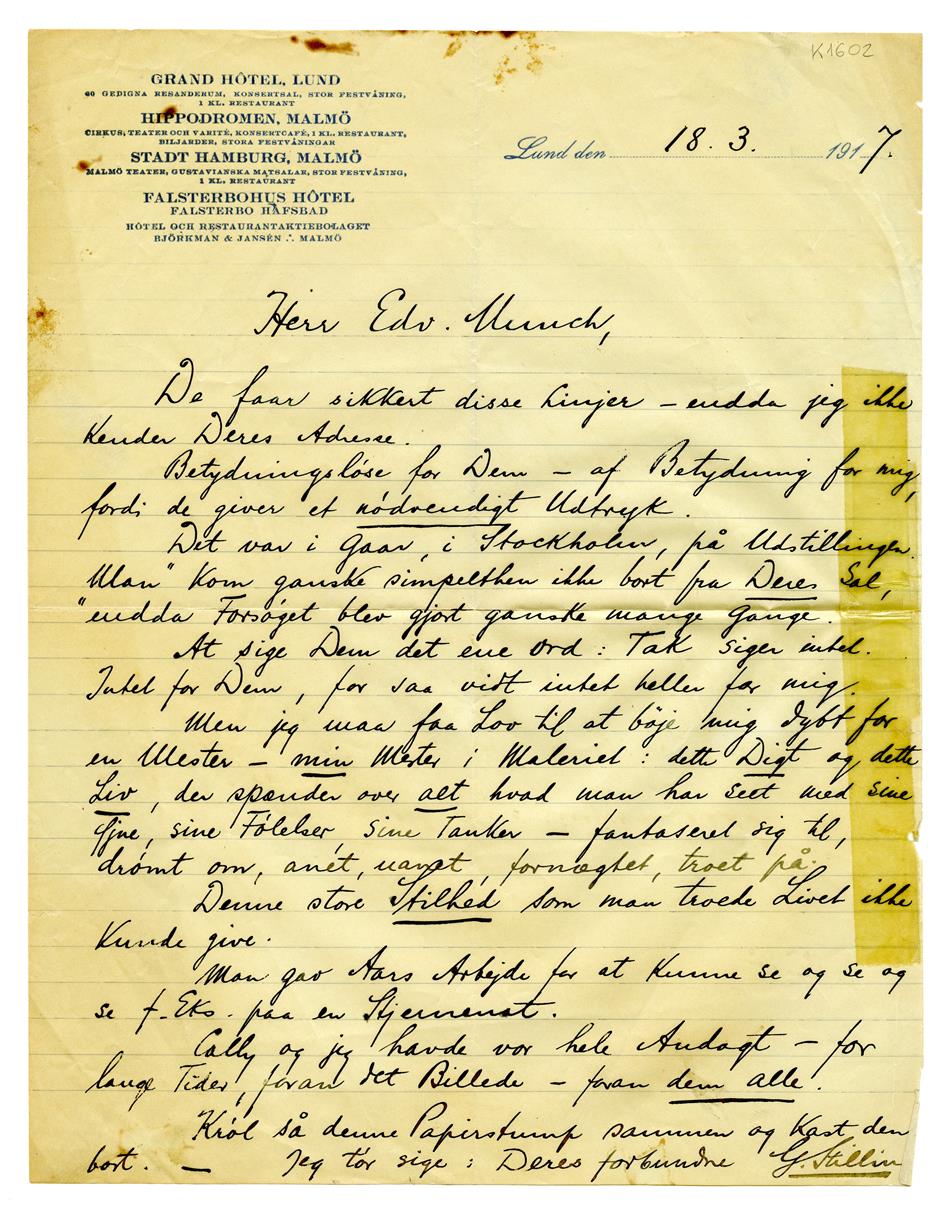 K1602
GRAND HÔTEL, LUND
60 GEDIGNA RESANDERUM, KONSERTSAL, STOR FESTVÅNING,
1 KL. RESTAURANT
HIPPODROMEN, MALMÖ
CIRKUS, TEATER OCH VARITÉ, KONSERTCAFÉ, 1 KL. RESTAURANT,
BILJARDER, STORA FESTVÅNINGAR
STADT HAMBURG, MALMÖ
MALMÖ TEATER, GUSTAVIANSKA MATSALAR, STOR FESTVÅNING,
1 KL. RESTAURANT
FALSTERBOHUS HÔTEL
FALSTERBO HAFSBAD
HÔTEL OCH RESTAURANTAKTIEBOLAGET
BJÖRKMAN & JANSÉN ∴ MALMÖ
Lund den 18. 3. 1917.
Herr Edv. Munch,
De faar sikkert disse Linjer – endda jeg ikke
kender Deres Adresse.
Betydningsløse for Dem – af Betydning for mig,
fordi de giver et nødvendigt Udtryk.
Det var i Gaar, i Stockholm, på Udstillingen.
"Man" kom ganske simpelthen ikke bort fra Deres Sal,
endda Forsøget blev gjort ganske mange Gange.
At sige Dem det ene Ord: Tak siger intet.
Intet for Dem, for saa vidt intet heller for mig.
Men jeg maa faa Lov til at bøje mig dybt for
en Mester – min Mester i Maleriet: dette Digt og dette
Liv, der spænder over alt hvad man har seet med sine
Øjne, sine Følelser, sine Tanker – fantaseret sig til,
drømt om, anet, uanet, fornægtet, troet på.
Denne store Stilhed som man troede Livet ikke
kunde give.
Man gav Aars Arbejde for at kunne se og se og
se f. Eks. paa en Stjernenat.
Cally og jeg havde vor hele Andagt – for
lange Tider, foran det Billede – foran dem alle.
Krøl så denne Papirstump sammen og kast den
bort. — Jeg tør sige: Deres forbundne G. Stillin